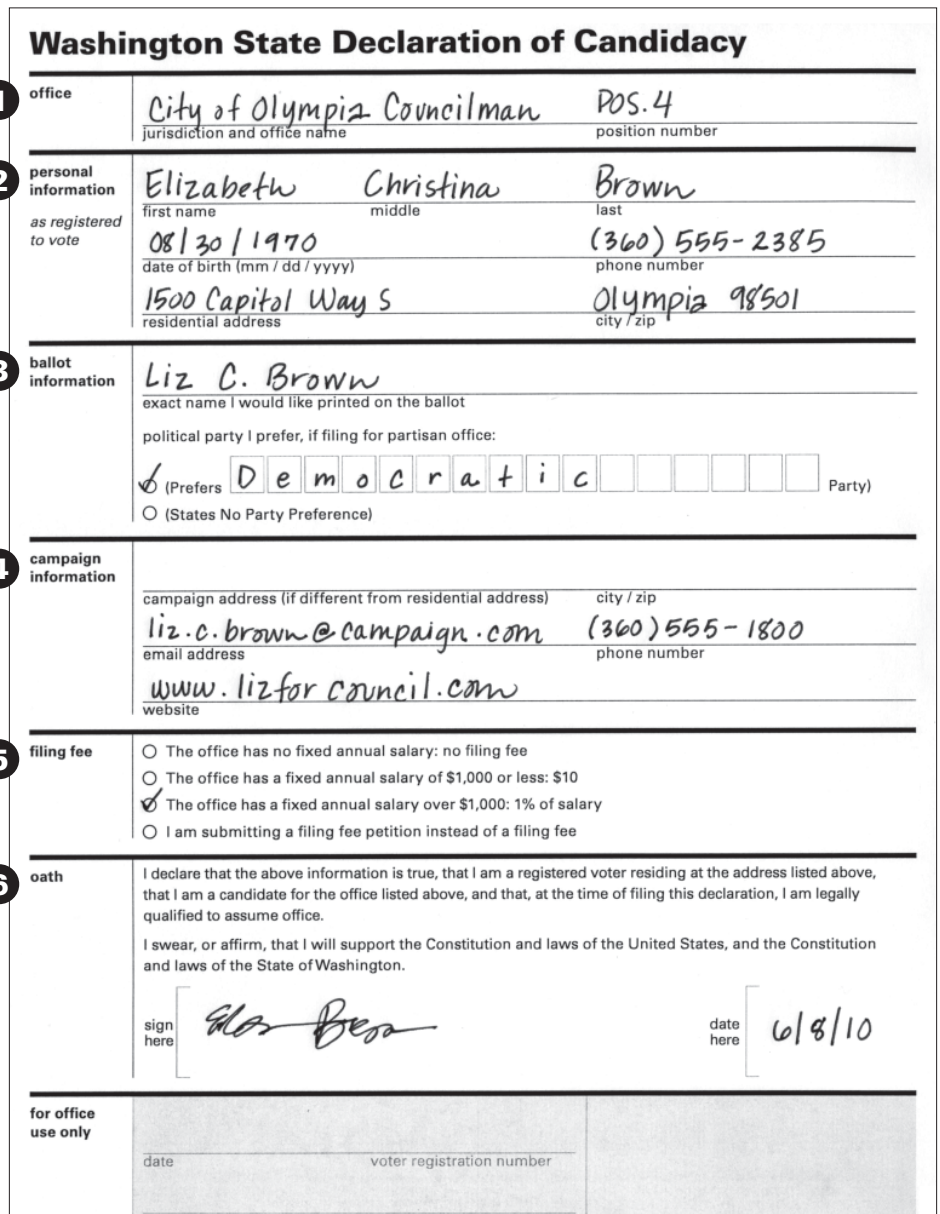 Washington State Declaration of Candidacy
1
office
City of Olympia Councilman POS. 4
jurisdiction and office name position number
2
personal information
as registered to vote
Elizabeth Christina Brown
first name middle last
08/30/1970 (360) 555-2385
date of birth (mm / dd / yyyy) phone number
1500 Capitol Way S Olympia 98501
residential address city / zip
3
ballot information
Liz C. Brown
exact name I would like printed on the ballot
political party I prefer, if filing for partisan office:
(Prefers Democratic Party)
(States No Party Preference)
4
campaign information
campaign address (if different from residential address) city / zip
liz.c.brown@campaign.com (360) 555-1800
email address phone number
www.lizforcouncil.com
website
5
filing fee
The office has no fixed annual salary: no filing fee
The office has a fixed annual salary of $1,000 or less: $10
The office has a fixed annual salary over $1,000: 1% of salary
I am submitting a filing fee petition instead of a filing fee
6
oath
I declare that the above information is true, that I am a registered voter residing at the address listed above,
that I am a candidate for the office listed above, and that, at the time of filing this declaration, I am legally
qualified to assume office.
I swear, or affirm, that I will support the Constitution and laws of the United States, and the Constitution
and laws of the State of Washington.
sign here
date here
6/8/10
for office use only
date voter registration number